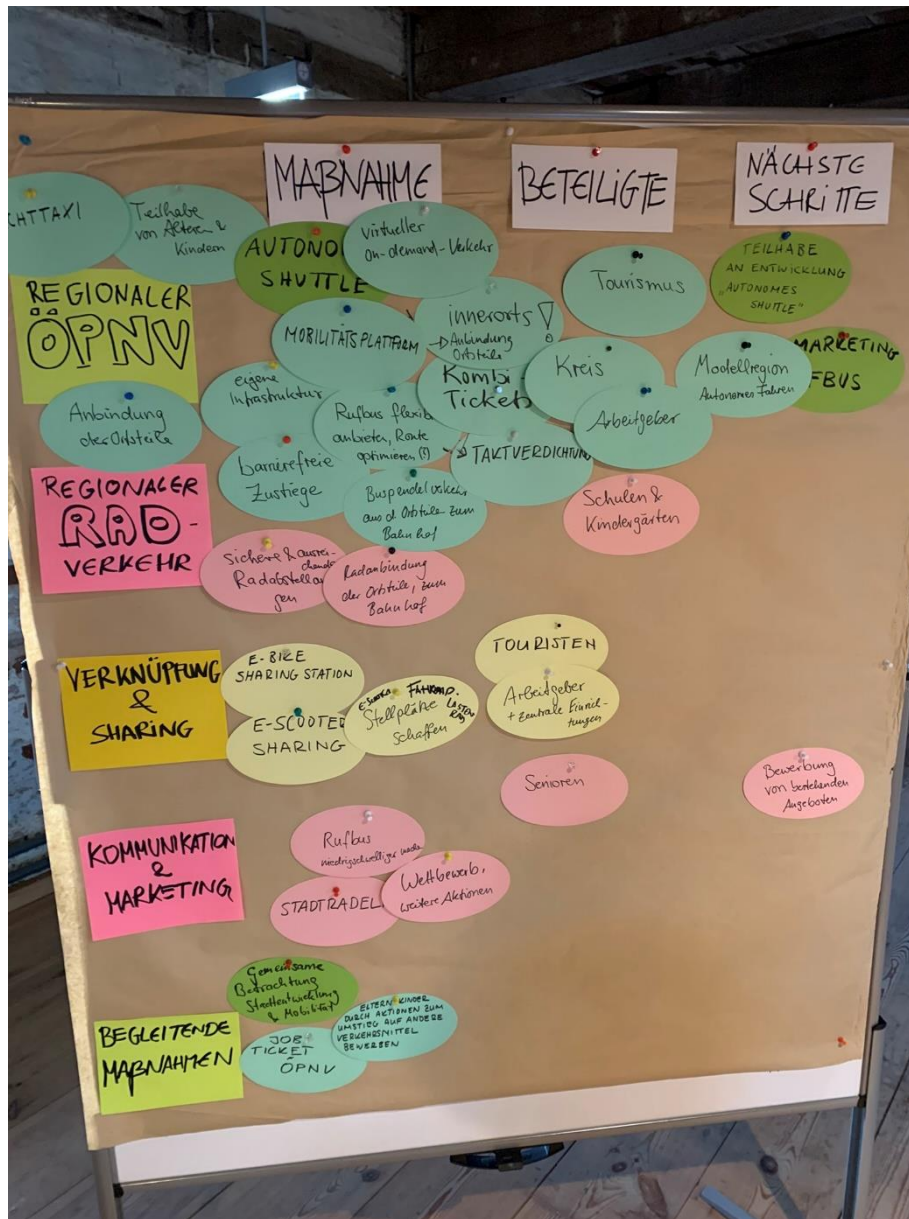 MAẞNAHME
BETEILIGTE
NÄCHSTE
SCHRITTE
CHTTAXI
Teilhabe
von Älteren &
Kindern
AUTONO
SHUTTLE
virtueller
on-demand-Verkehr
Tourismus
TEILHABE
AN ENTWICKLUNG
„AUTONOMES
SHUTTLE"
REGIONALER
ÖPNV
MOBILITÄTSPLATTFORM
innerorts !
→ Anbindung
Ortsteile
Kreis
Modellregion
Autonomes Fahren
MARKETING
FBUS
Anbindung
der Ortsteile
eigene
Infrastruktur
Rufbus flexib
anbieten, Route
optimieren (?)
Kombi
Ticket
Arbeitgeber
barrierefreie
Zustiege
→ TAKTVERDICHTUNG
Buspendelverkehr
aus d. Ortsteile zum
Bahnhof
REGIONALER
RAD-
VERKEHR
Schulen &
Kindergärten
Sichere & ausrei-
chende
Radabstellan
gen
Radanbindung
der Ortsteile, zum
Bahnhof
VERKNÜPFUNG
&
SHARING
E-BIKE
SHARING STATION
E-SCOOTER
SHARING
FAHRRAD.
LASTEN
RAD
Stellplätze
schaffen
TOURISTEN
Arbeitgeber
+ zentrale Einrich-
tungen
Senioren
Bewerbung
von bestehenden
Angeboten
KOMMUNIKATION
&
MARKETING
Rufbus
niedrigschwelliger
STADTRADEL
Wettbewerb,
weitere Aktionen
BEGLEITENDE
MAẞNAHMEN
Gemeinsame
Betrachtung
Stadtentwicklung
& Mobilität
JOB
TICKET
ÖPNV
ELTERN KINDER
DURCH AKTIONEN ZUM
UMSTIEG AUF ANDERE
VERKEHRSMITTEL
BEWERBEN